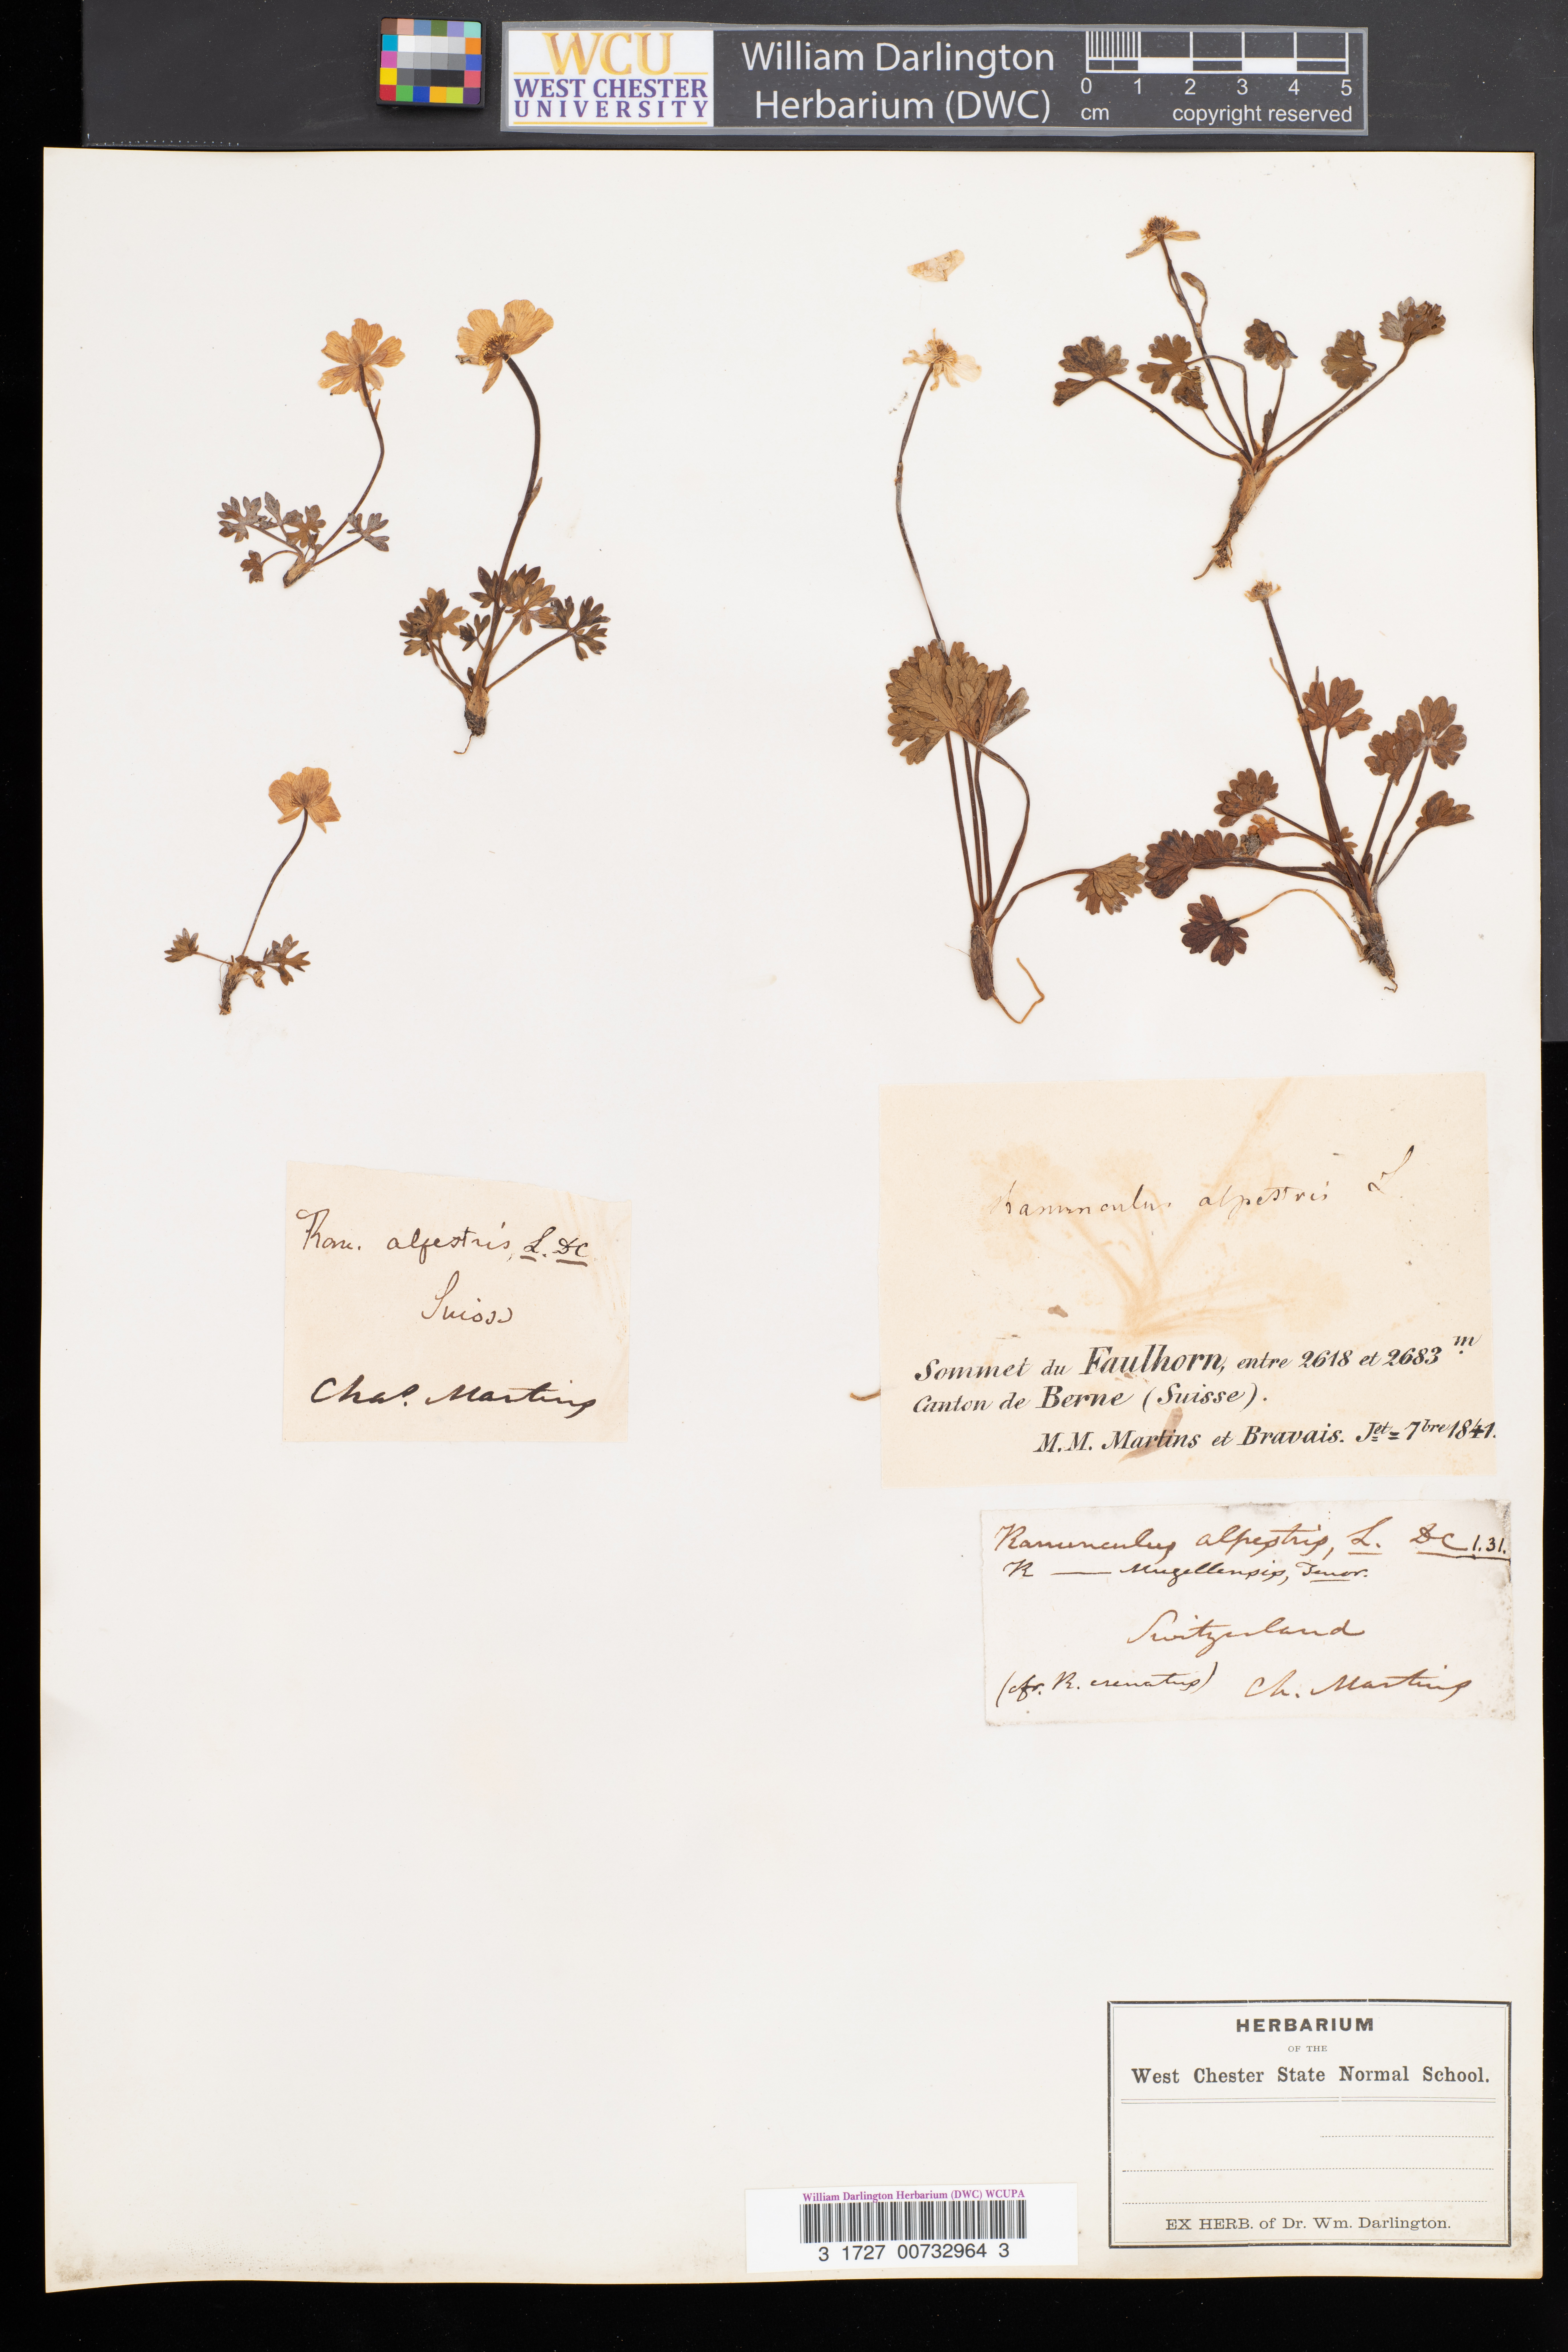 WCU
WEST CHESTER
UNIVERSITY
William Darlington
Herbarium (DWC)
0 1 2 3 4 5
cm copyright reserved
Ran. alpestris, L. DC
Suisse
Chas. Martins
Ranunculus alpestris L
Sommet du Faulhorn, entre 2618 et 2683 m
Canton de Berne (Suisse).
M.M. Martins et Bravais. Jet = 7bre 1841.
Ranunculus alpestris, L. DC 1.31.
R — Mugellensis, Tenor.
Switzerland
(cfr. R. crenatus) Ch. Martins
HERBARIUM
OF THE
West Chester State Normal School.
EX HERB. of Dr. Wm. Darlington.
William Darlington Herbarium (DWC) WCUPA
3 1727 00732964 3